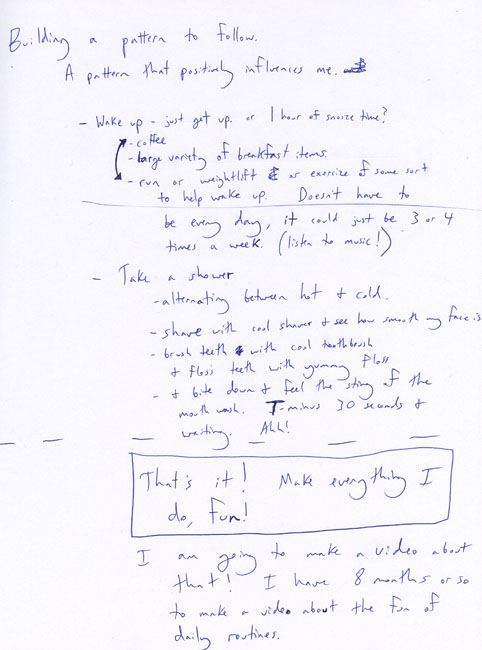 Building a pattern to follow.
A pattern that positively influences me.
- Wake up - just get up. or 1 hour of snooze time?
- coffee
- large variety of breakfast items.
- run or weightlift or exercize of some sort
to help wake up. Doesn't have to
be every day, it could just be 3 or 4
times a week. (listen to music!)
- Take a shower
- alternating between hot & cold.
- shave with cool shaver & see how smooth my face is
- brush teeth with cool toothbrush
& floss teeth with yummy floss
- & bite down & feel the sting of the
mouth wash. T-minus 30 seconds &
waiting. Ahh!
That's it! Make everything I
do, fun!
I am going to make a video about
that! I have 8 months or so
to make a video about the fun of
daily routines.